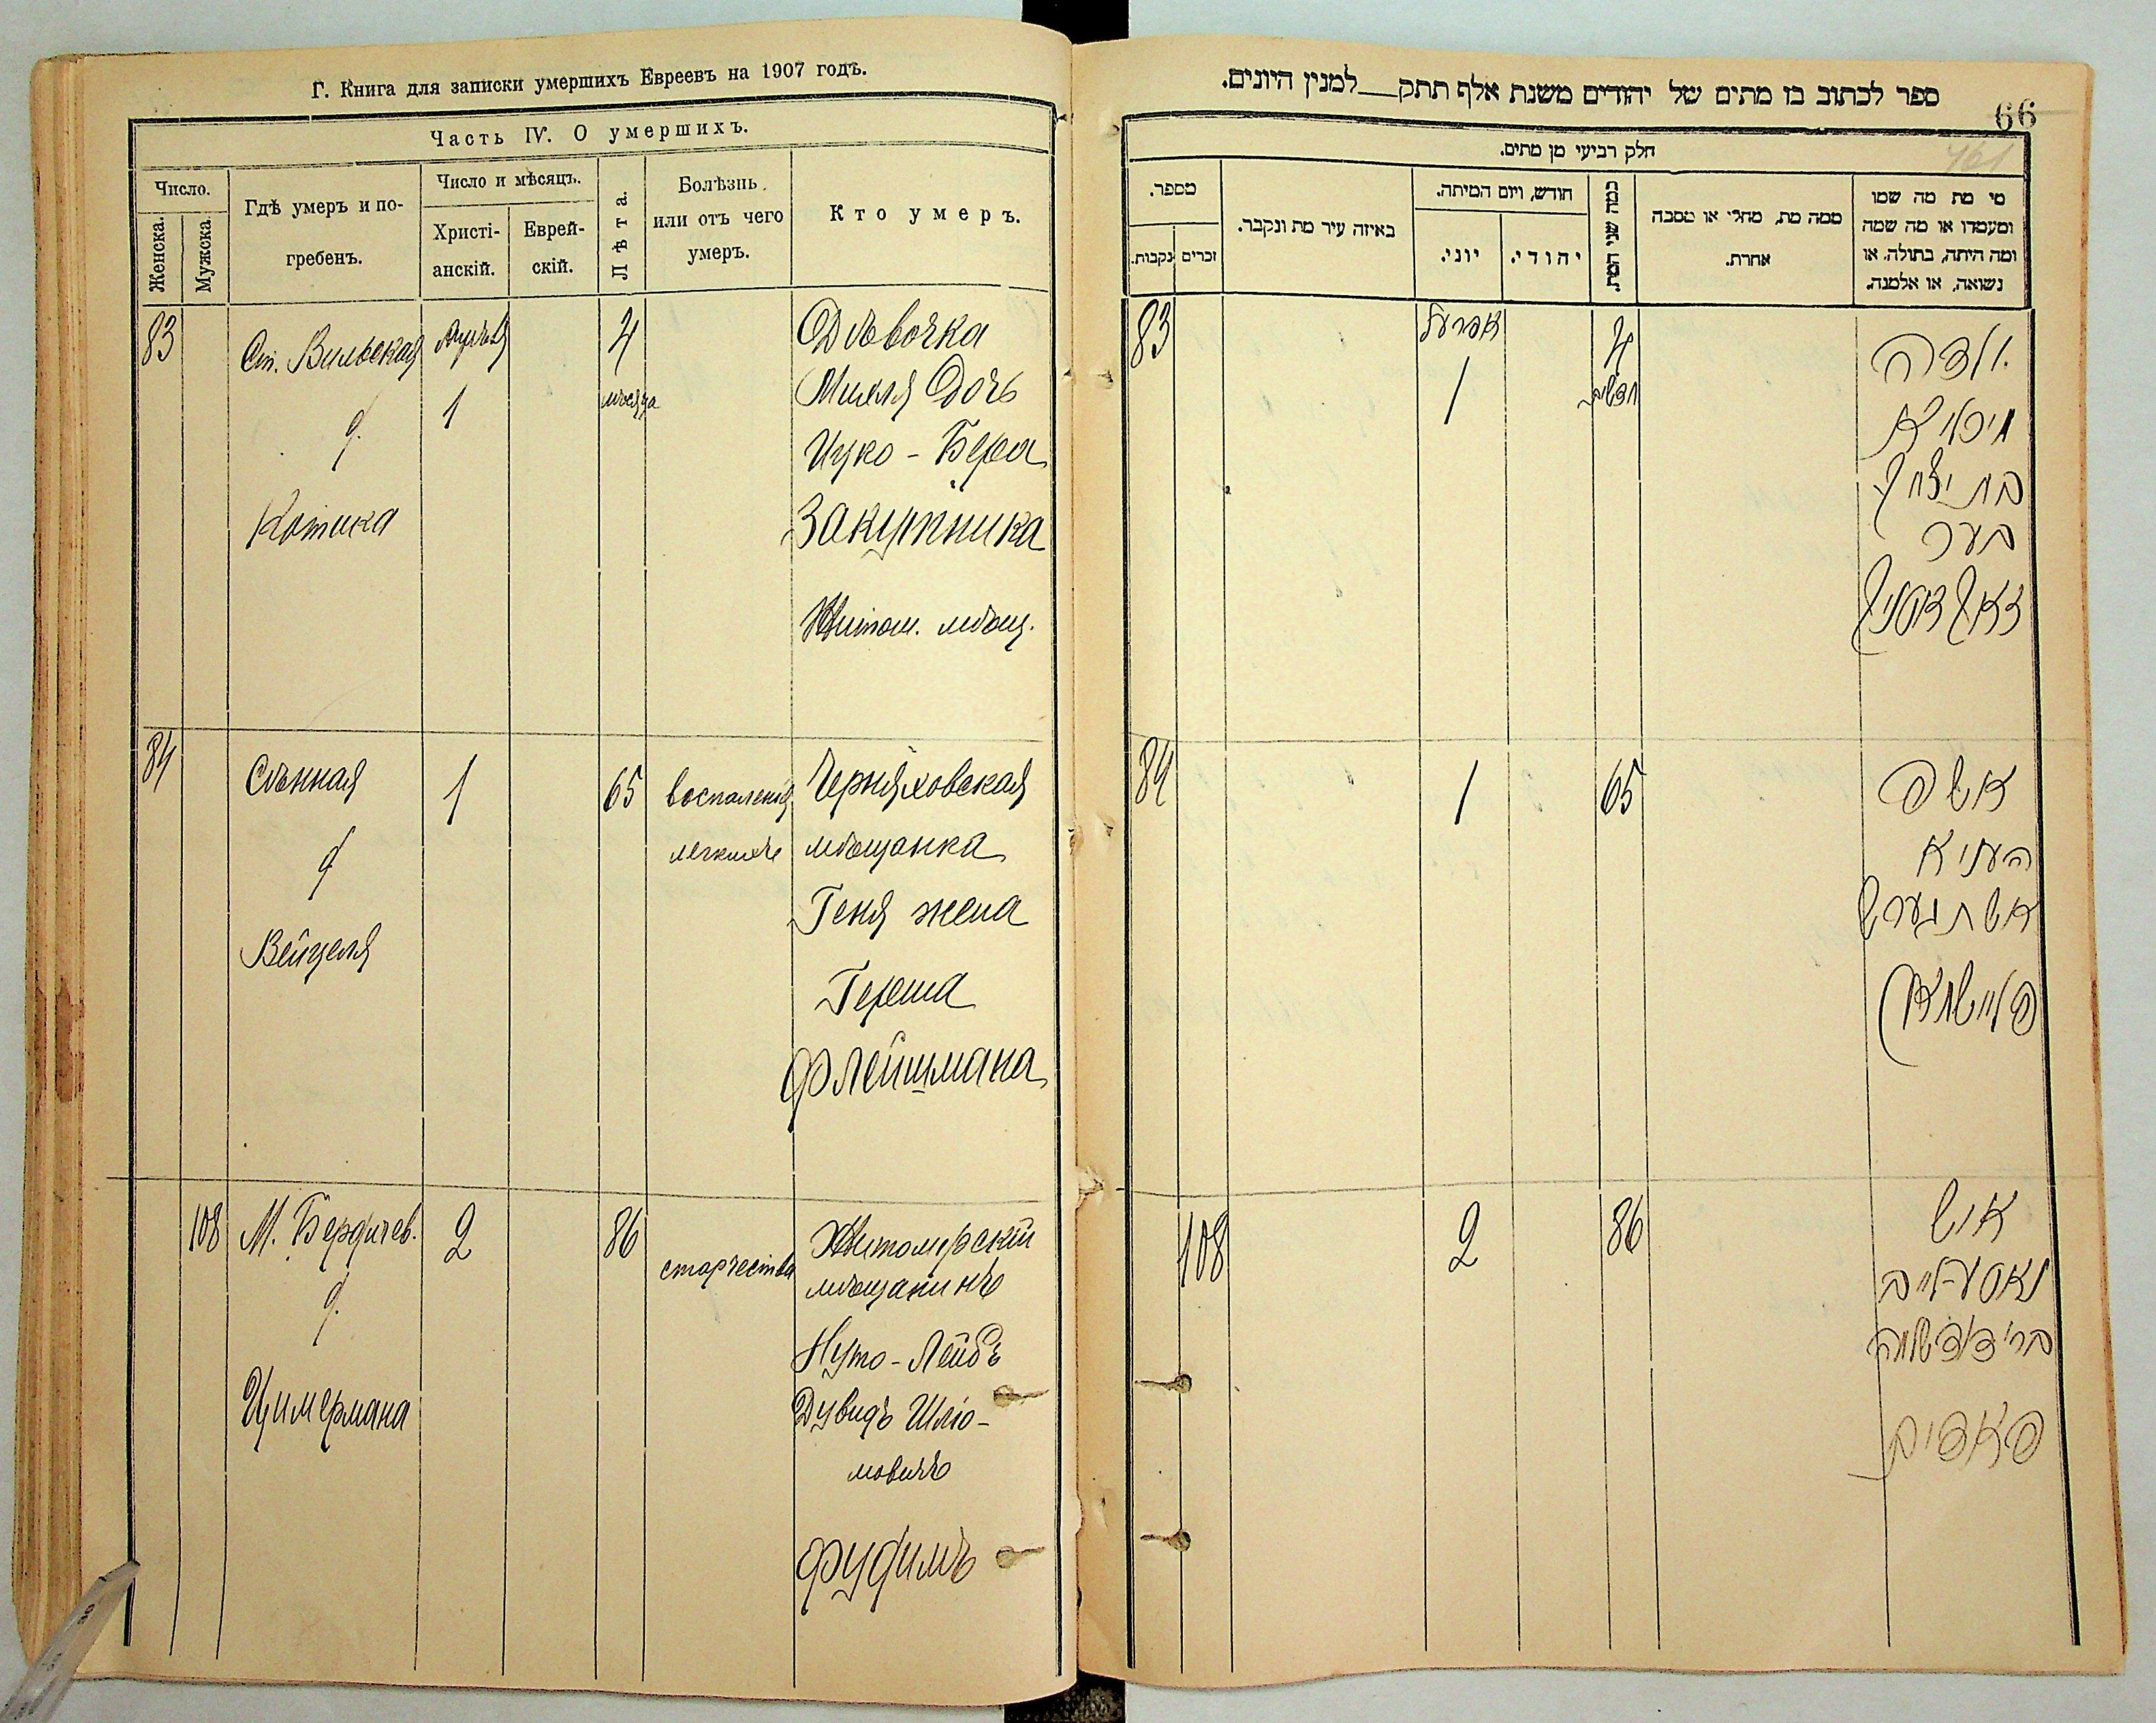 Г. Книга для записки умершихъ Евреевъ на 1907 годъ.
Часть IV. О умершихъ.
Число.
Женска.
Мужска.
Гдѣ умеръ и по-
гребенъ.
Число и мѣсяцъ.
Христі-
анскій.
Еврей-
скій.
Лѣта.
Болѣзнь
или отъ чего
умеръ.
Кто умеръ.
83
Ст. Вильская
д.
Котика
1
4
мѣсяца
Дѣвочка
Михля Дочь
Ицко-Бера
Закупника
Житом. мѣщ.
84
Сѣнная
д
Вейцеля
1
65
воспаленія
легкихъ
Черняховская
мѣщанка
Геня жена
Герша
Флейшмана
108
М. Бердичев.
д.
Цимермана
2
86
старчества
Житомирскій
мѣщанинъ
Нуто-Лейбъ
Дувидъ Шлiо-
мовичъ
Фудимъ
ספר לכתוב בו מתים של יהודים משנת אלף תתק למנין היונים.
66
461
חלק רביעי מן מתים.
מספר.
נקבות.
זכרים
באיזה עיר מת ונקבר.
חודש, ויום המיתה.
יוני.
יהודי.
כמה שני המת.
ממה מת, מחלי או מסבה
אחרת.
מי מת מה שמו
ומעמדו או מה שמה
ומה היתה, בתולה, או
נשואה, או אלמנה.
83
אפריל
1
4
חדשים
ילדה
מיכליא
בת יצחק
בער
זאקופניק
84
1
65
אשה
העניא
אשת גערש
פליישמאן
108
2
86
איש
נאטע-לייב